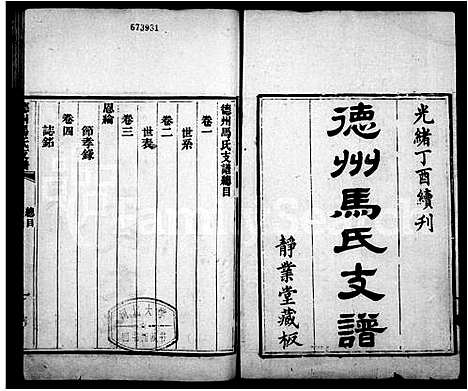 光緒丁酉續刊
德州馬氏支譜
靜業堂藏板
673931
德州馬氏支譜總目
卷一
世系
卷二
世表
卷三
恩綸
節孝錄
卷四
誌銘
總目